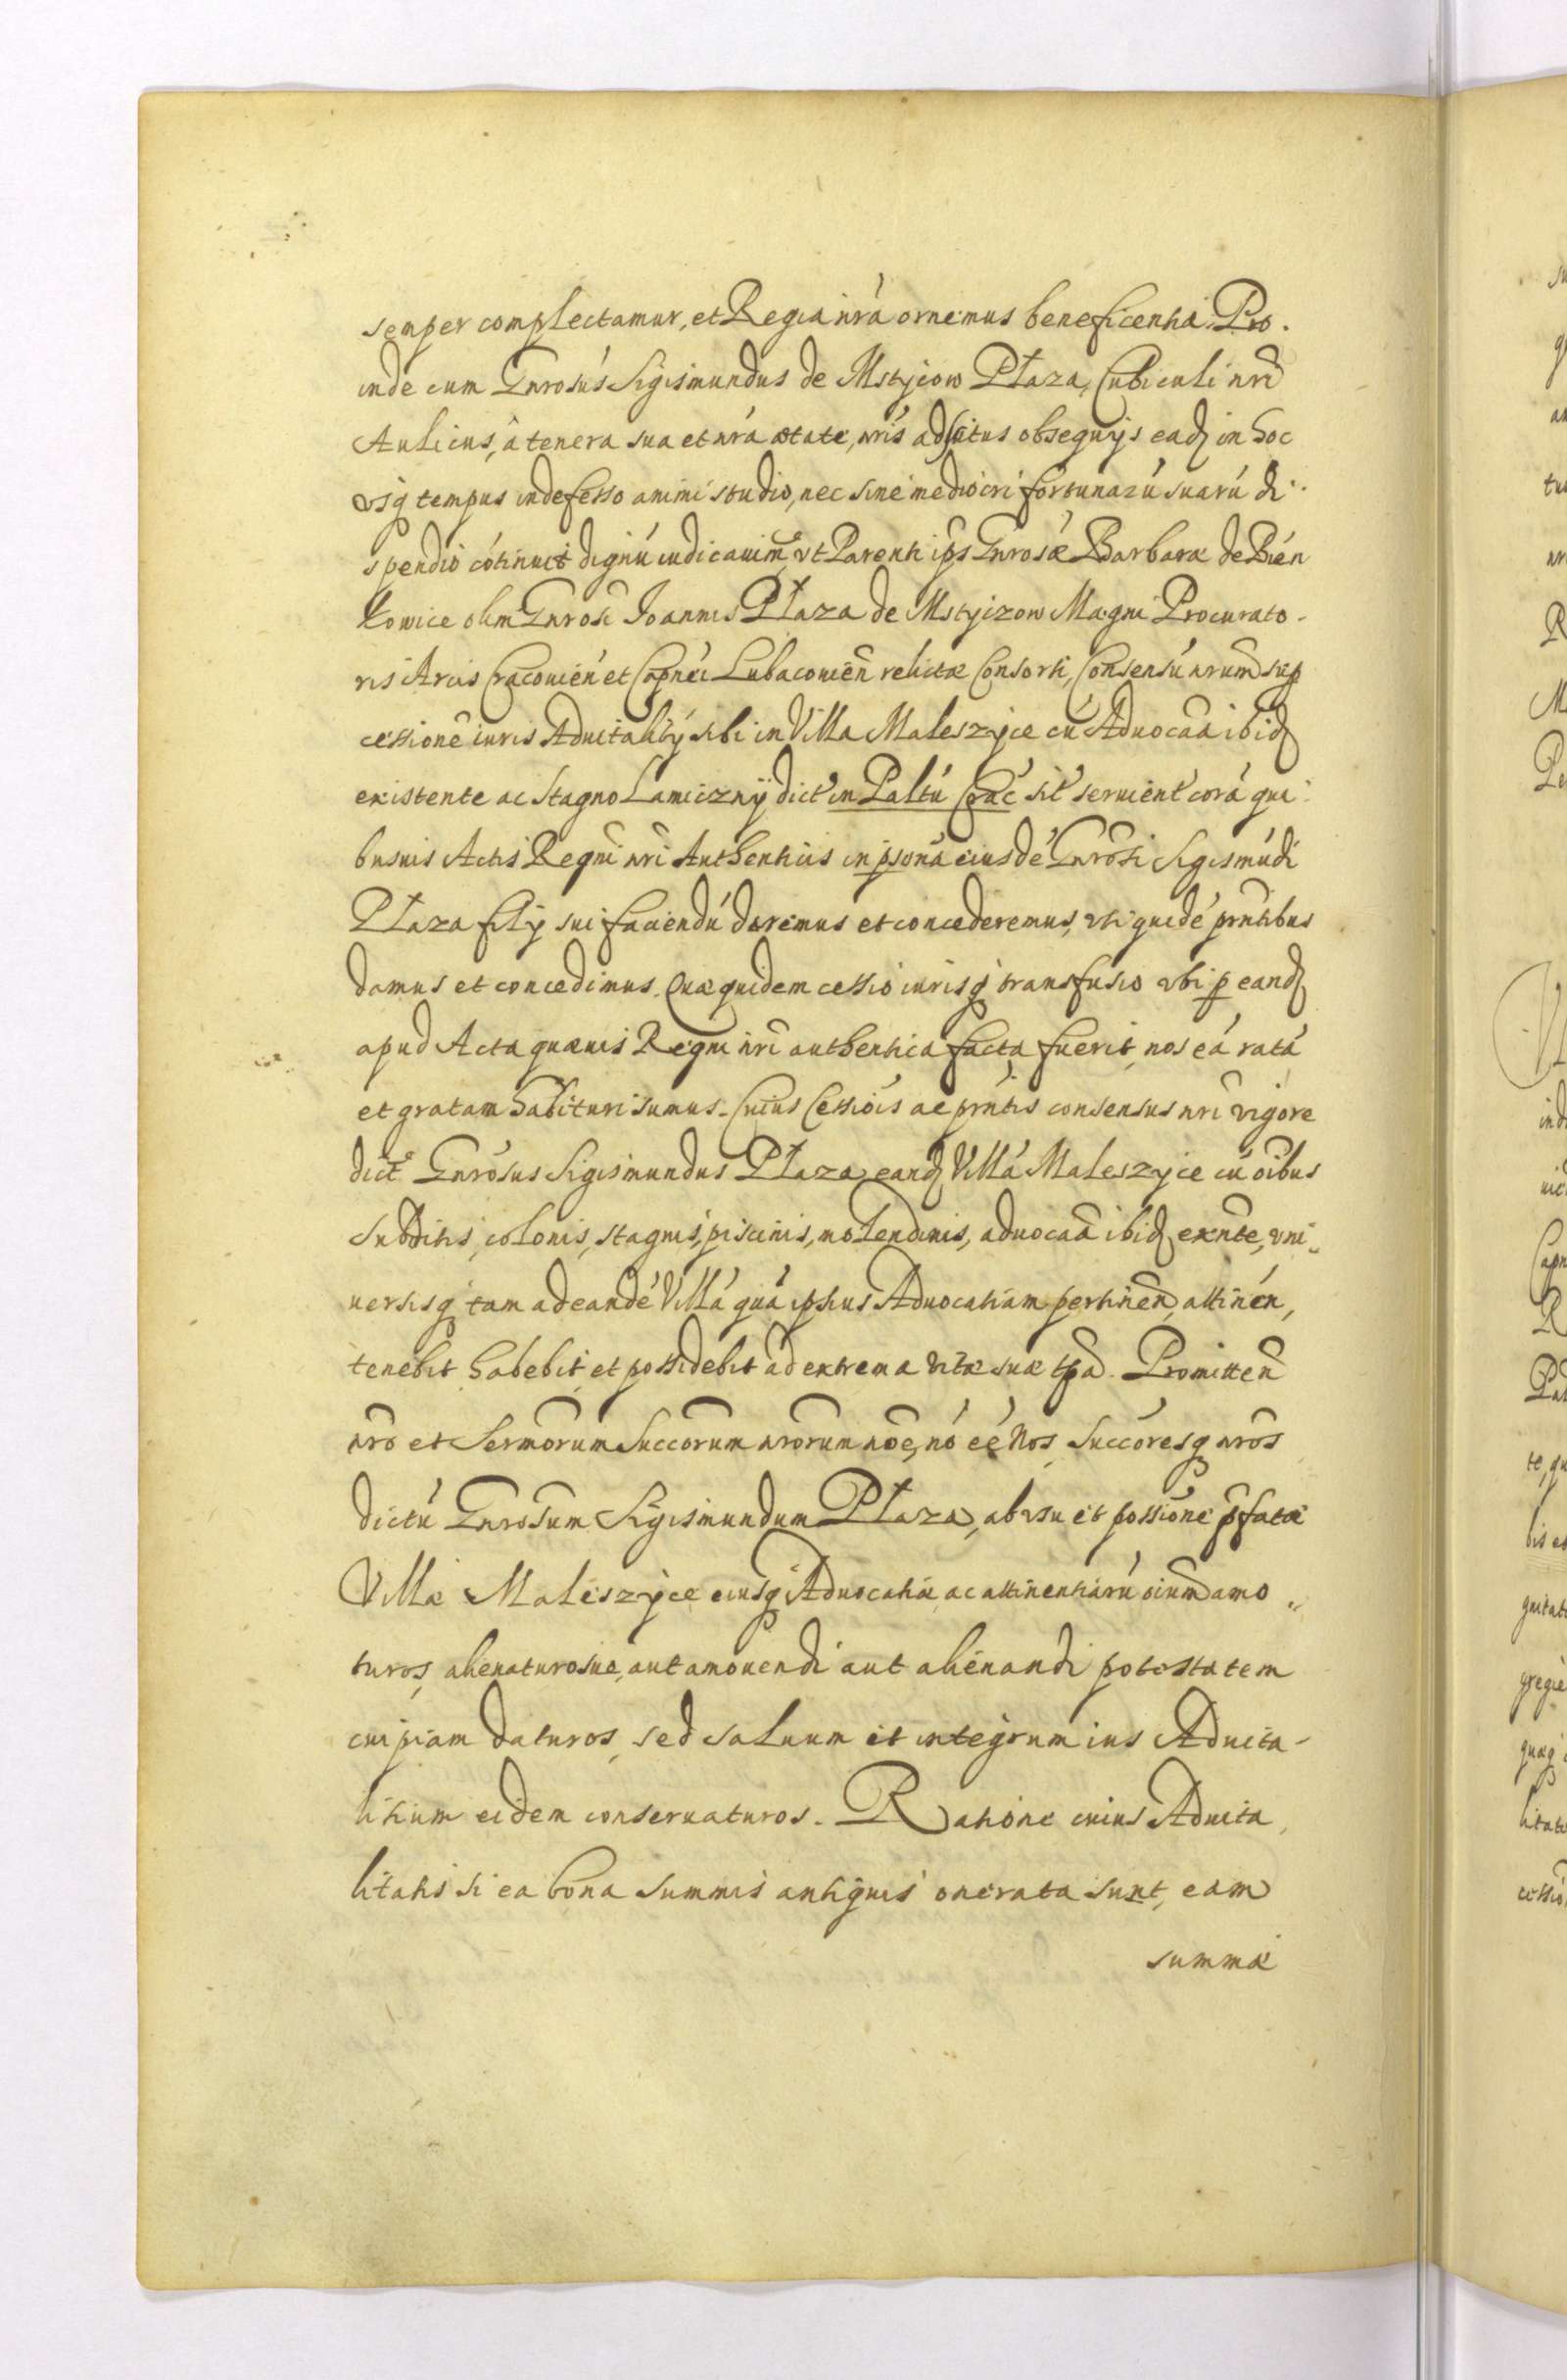 semper complectamur, et Regia nrã ornemus beneficentia. Pro.
inde cum Gnrosus Sigismundus de Mstyiow Płaza, Cubiculi nrĩ
Aulicus, à tenera sua et nrã ætate, nris adscitus obsequijs eadẽ in hoc
vsq tempus indefesso animi studio, nec sine mediocri fortunarũ suarũ di
spendio cõtinuet dignũ iudicauimꝰ vt Parenti ips Gnrosæ Barbaræ de Bień
kowice olim Gnrosi Joannis Płaza de Mstyizow Magni Procurato-
ris Arcis Cracouień et Capnei Lubacouień relictæ Consorti, Consensũ nrum sup
cessione iuris Aduitalitij sibi in Villa Maleszyce cũ Aduocãa ibidẽ
existente ac Stagno Lamiczny dict in Paltũ Crac̃ sit̃ seruient̃ corã qui
busuis Actis Regni nri Authenticis in psonã eiusdẽ Gnrosi Sigismũdi
Płaza filij sui faciendũ daremus et concederemus, vti quidẽ pntibus
damus et concedimus. Quæ quidem cessio iurisq transfusio vbi p eandẽ
apud Acta quæuis Regni nri authentica facta fuerit, nos eã ratã
et gratam habituri sumus. Cuius Cessiõis ac pntis consensus nri vigore
dictꝰ Gnrosus Sigismundus Płaza, eandẽ Villã Maleszyce cũ oĩbus
Subditis, colonis, stagnis, piscinis, molendinis, aduocãa ibidẽ exnte, vni„
uersisq tam ad eandẽ Villã quã ipsius Aduocatiam pertineñ, attineñ,
tenebit habebit et possidebit ad extrema vitæ suæ tpã. Promitteñ
nro et Sermorum Succorum nrorum noĩe, nõ eẽ Nos Succoresq nros
dictũ Gnrosum Sigismundum Płaza, ab vsu et possione pfatæ
Villæ Maleszyce eiusq Aduocatiæ ac attinentiarũ oium amo„
turos, alienaturosue, aut amouendi aut alienandi potestatem
cuipiam daturos, sed saluum et integrum ius Aduita-
litium eidem conseruaturos. Ratione cuius Aduita
litatis si ea bona summis antiquis onerata sunt, eam
summæ